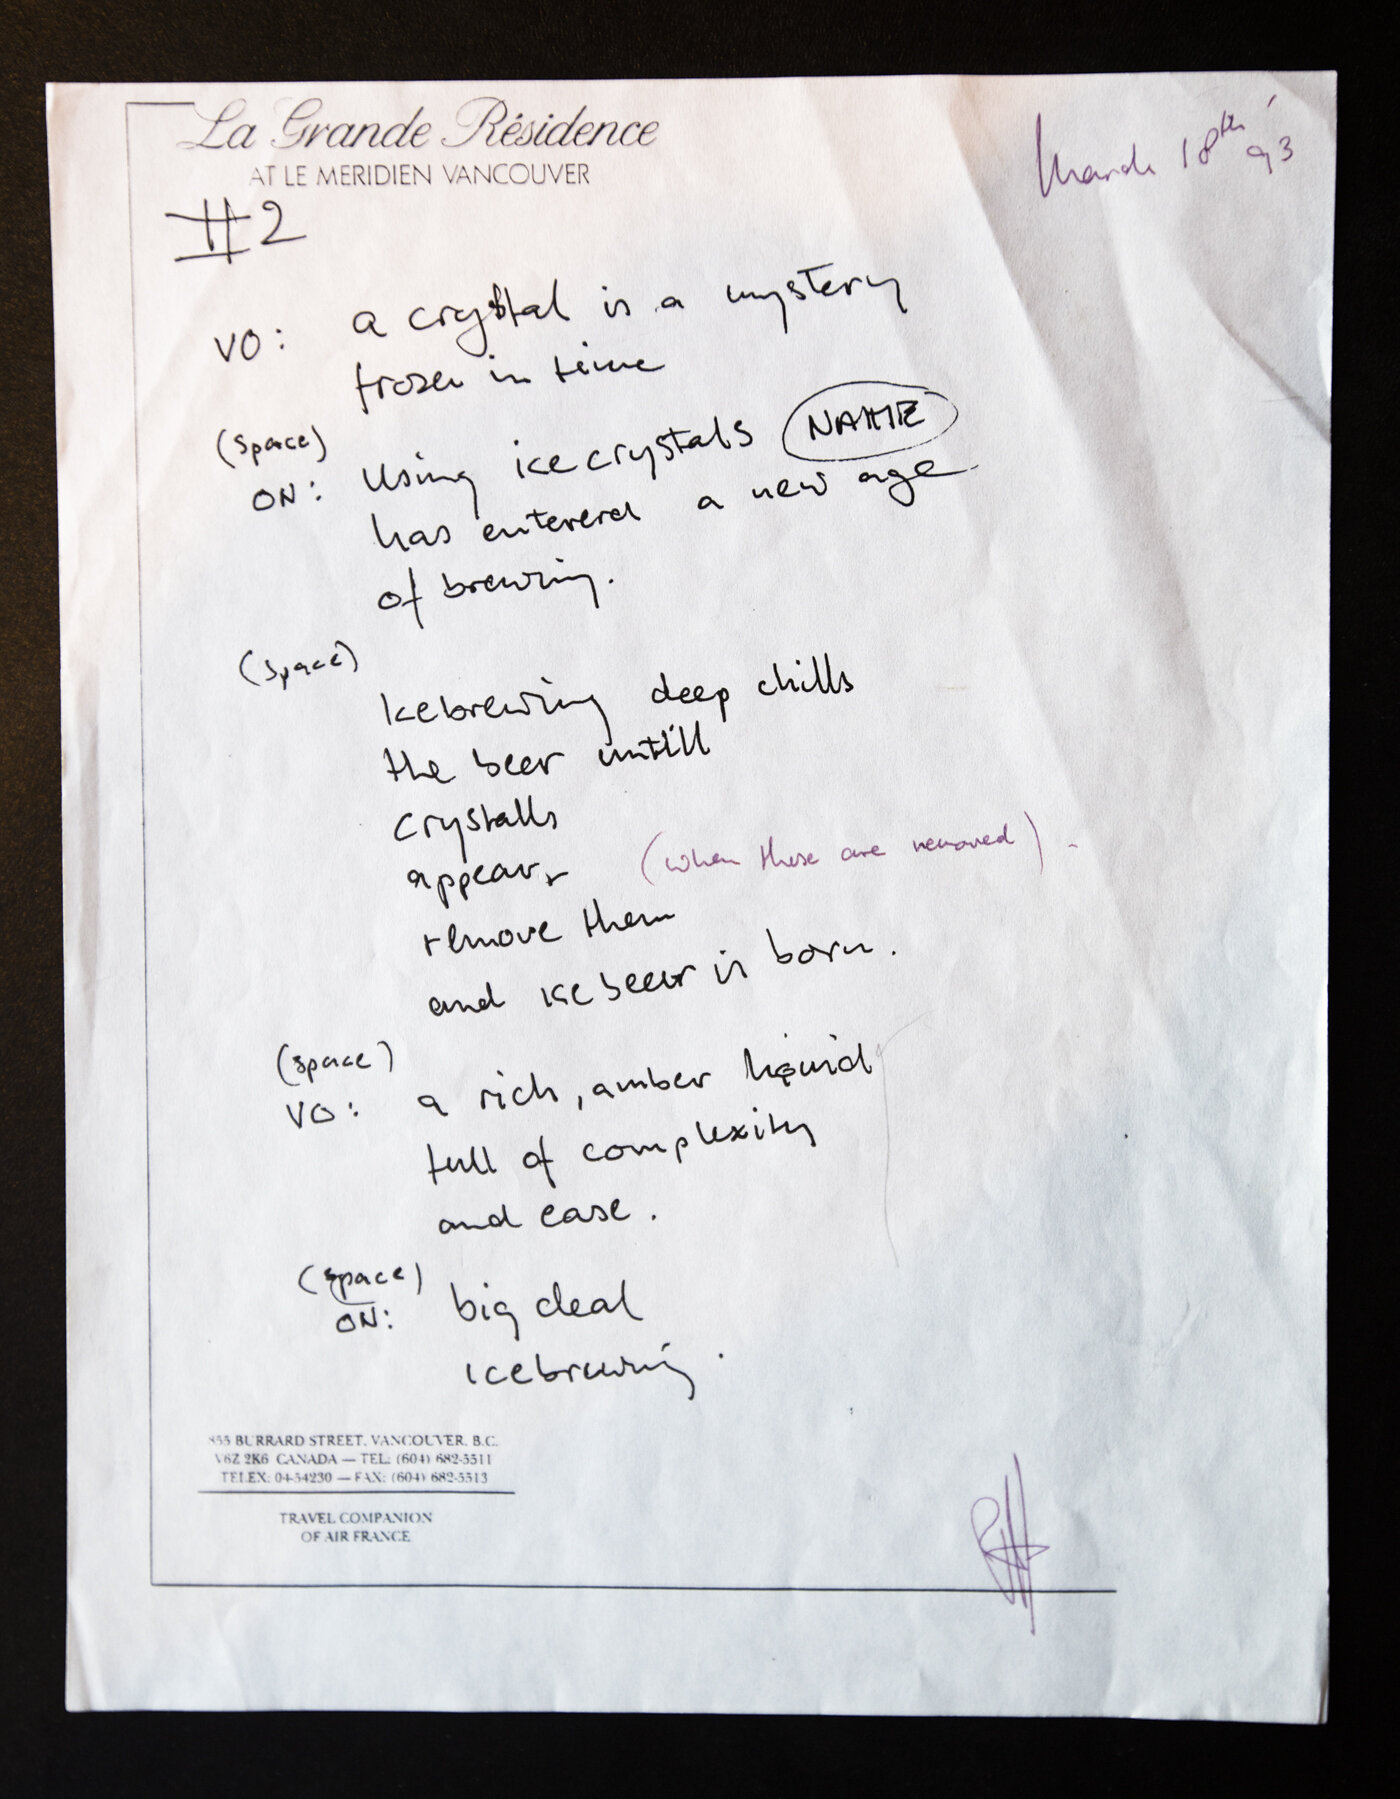 La Grande Résidence
AT LE MERIDIEN VANCOUVER
March 18th '93
#2
VO: a crystal is a mystery
frozen in time
(space)
ON: Using icecrystals NAME
has entered a new age
of brewing.
(space)
Icebrewing deep chills
the beer untill
crystalls
appear, (when these are removed).
remove them
and ice beer is born.
(space)
VO: a rich, amber liquid
full of complexity
and ease.
(space)
ON: big deal
icebrewing.
855 BURRARD STREET, VANCOUVER, B.C.
V6Z 2K6 CANADA — TEL: (604) 682-5511
TELEX: 04-54230 — FAX: (604) 682-5513
TRAVEL COMPANION
OF AIR FRANCE